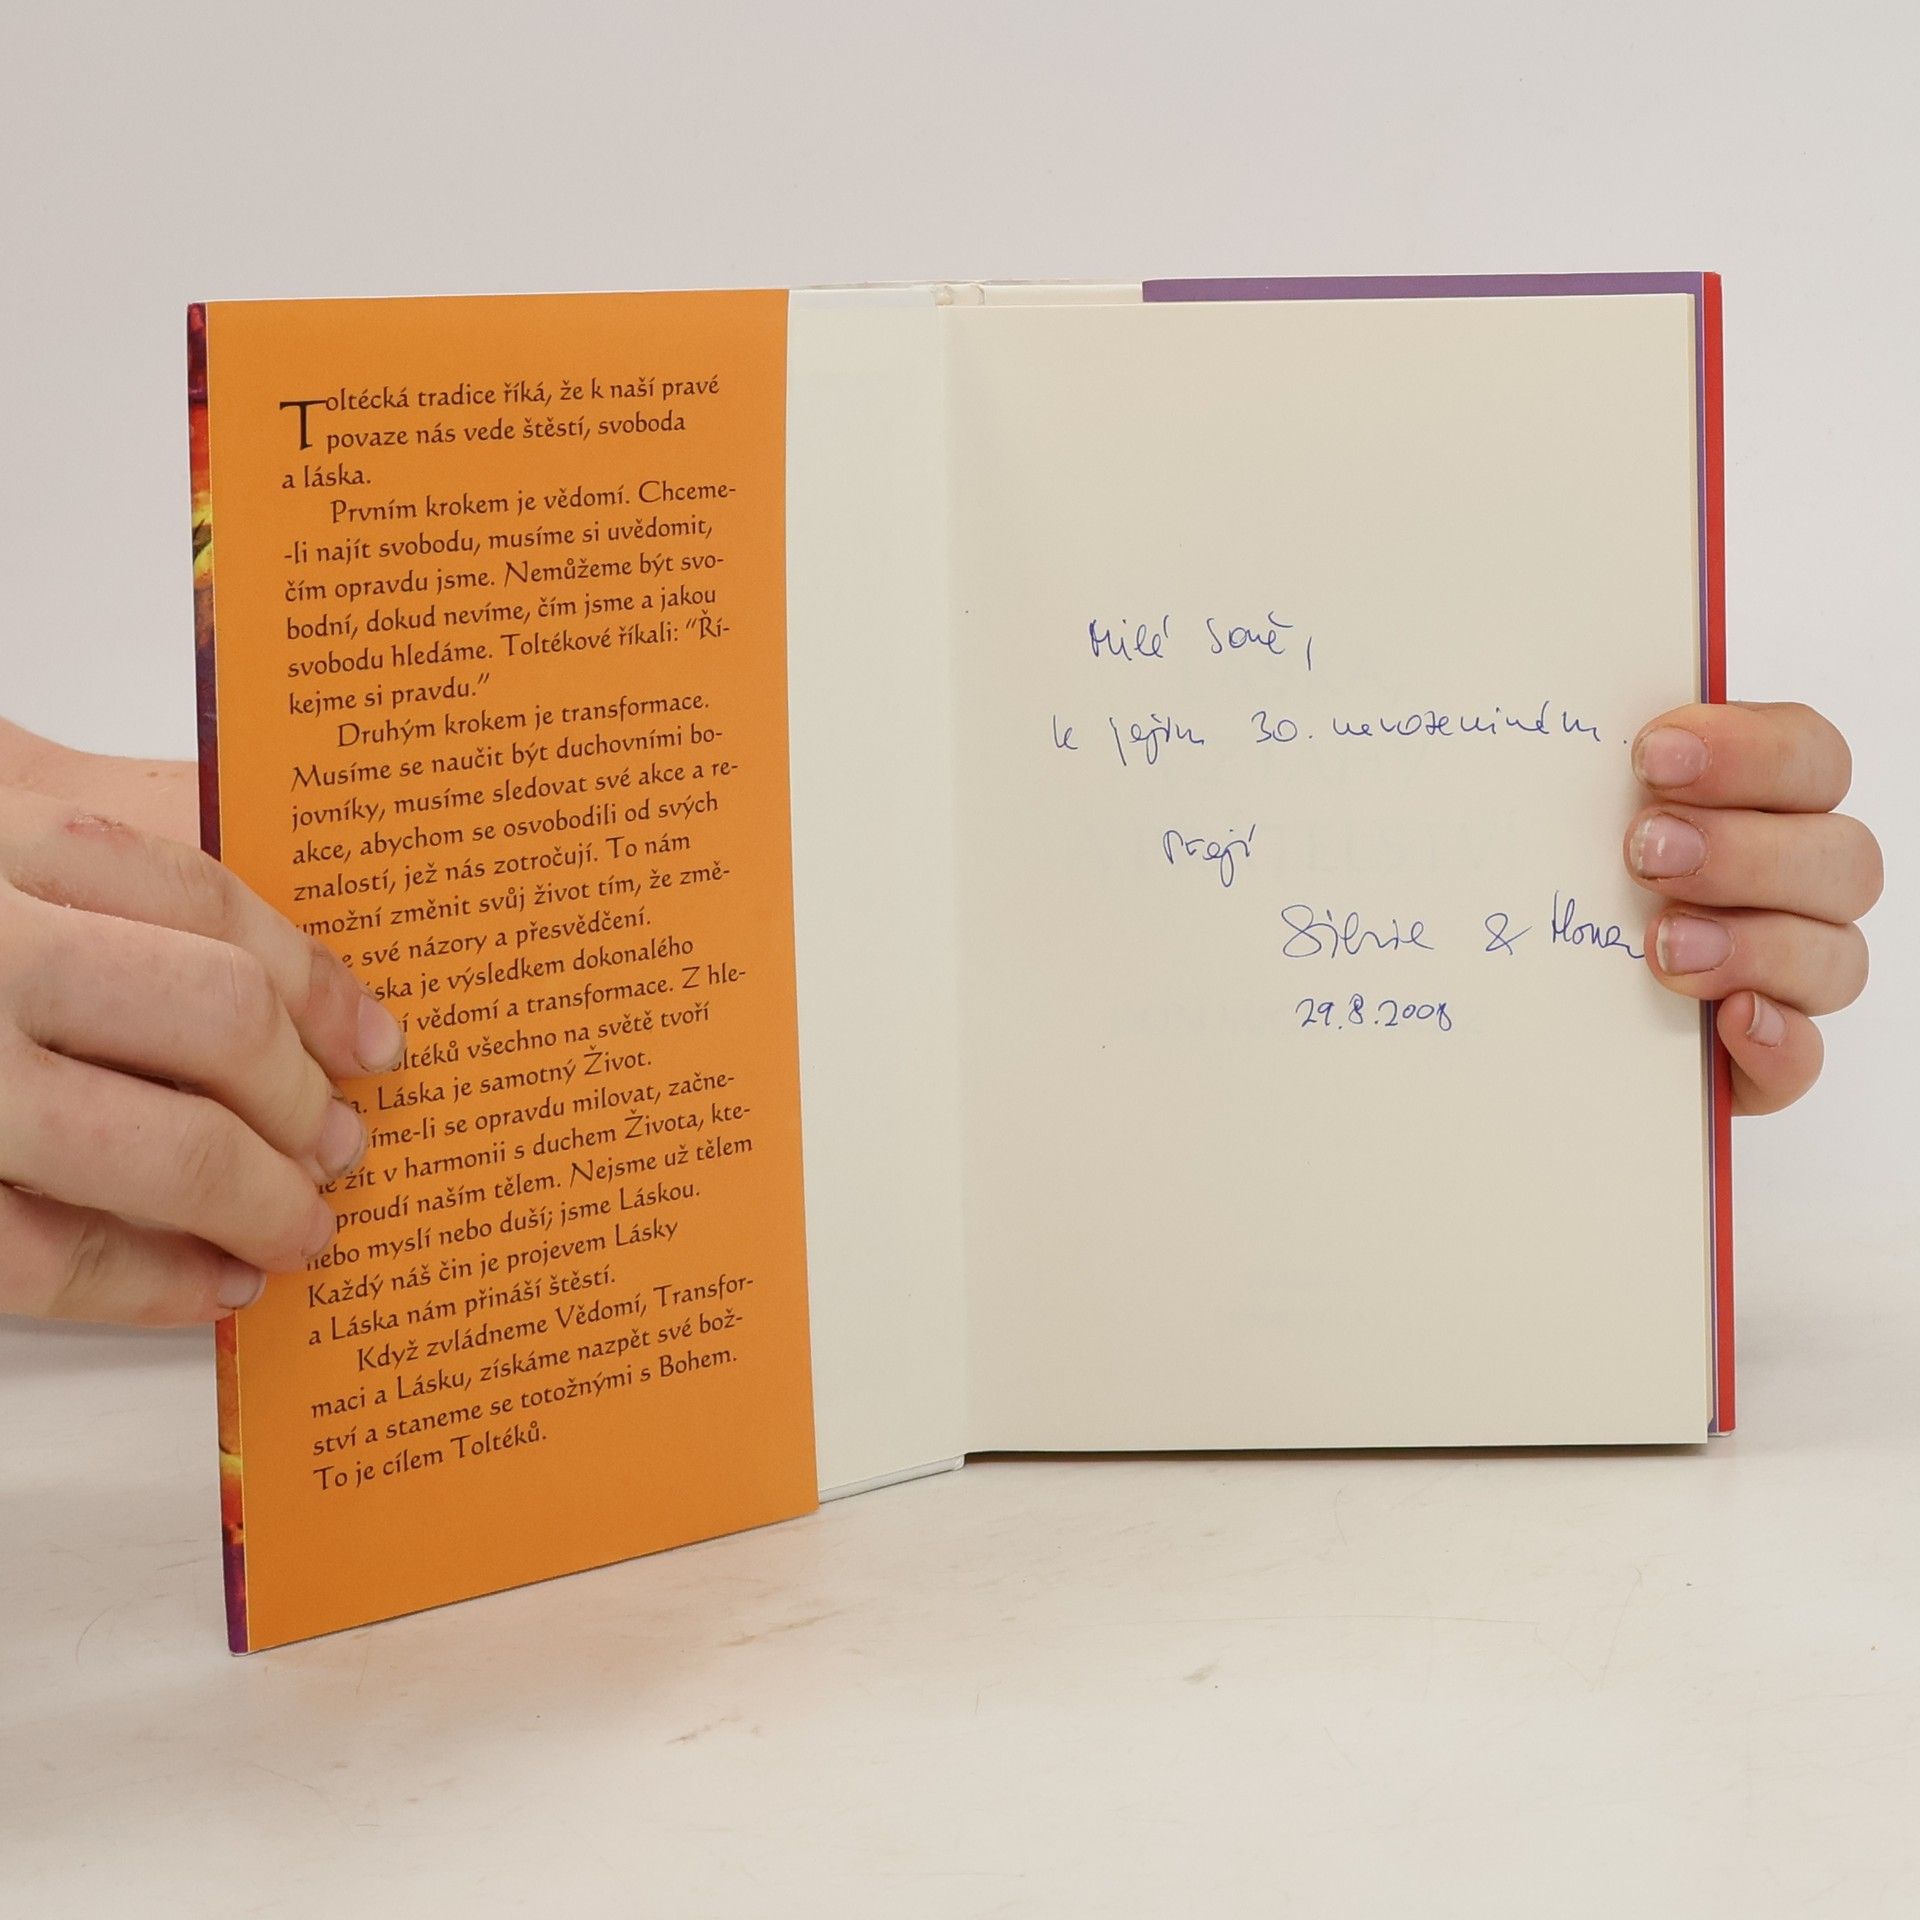 Toltécká tradice říká, že k naší pravé
povaze nás vede štěstí, svoboda
a láska.
Prvním krokem je vědomí. Chceme-
-li najít svobodu, musíme si uvědomit,
čím opravdu jsme. Nemůžeme být svo-
bodní, dokud nevíme, čím jsme a jakou
svobodu hledáme. Toltékové říkali: "Ří-
kejme si pravdu."
Druhým krokem je transformace.
Musíme se naučit být duchovními bo-
jovníky, musíme sledovat své akce a re-
akce, abychom se osvobodili od svých
znalostí, jež nás zotročují. To nám
umožní změnit svůj život tím, že změ-
své názory a přesvědčení.
je výsledkem dokonalého
vědomí a transformace. Z hle-
všechno na světě tvoří
Láska je samotný Život.
se opravdu milovat, začne-
žít v harmonii s duchem Života, kte-
proudí naším tělem. Nejsme už tělem
nebo myslí nebo duší; jsme Láskou.
Každý náš čin je projevem Lásky
a Láska nám přináší štěstí.
Když zvládneme Vědomí, Transfor-
maci a Lásku, získáme nazpět své bož-
ství a staneme se totožnými s Bohem.
To je cílem Toltéků.
Milé Soně,
k jejím 30. narozeninám.
Přejí
Silvie &
29.8.2008